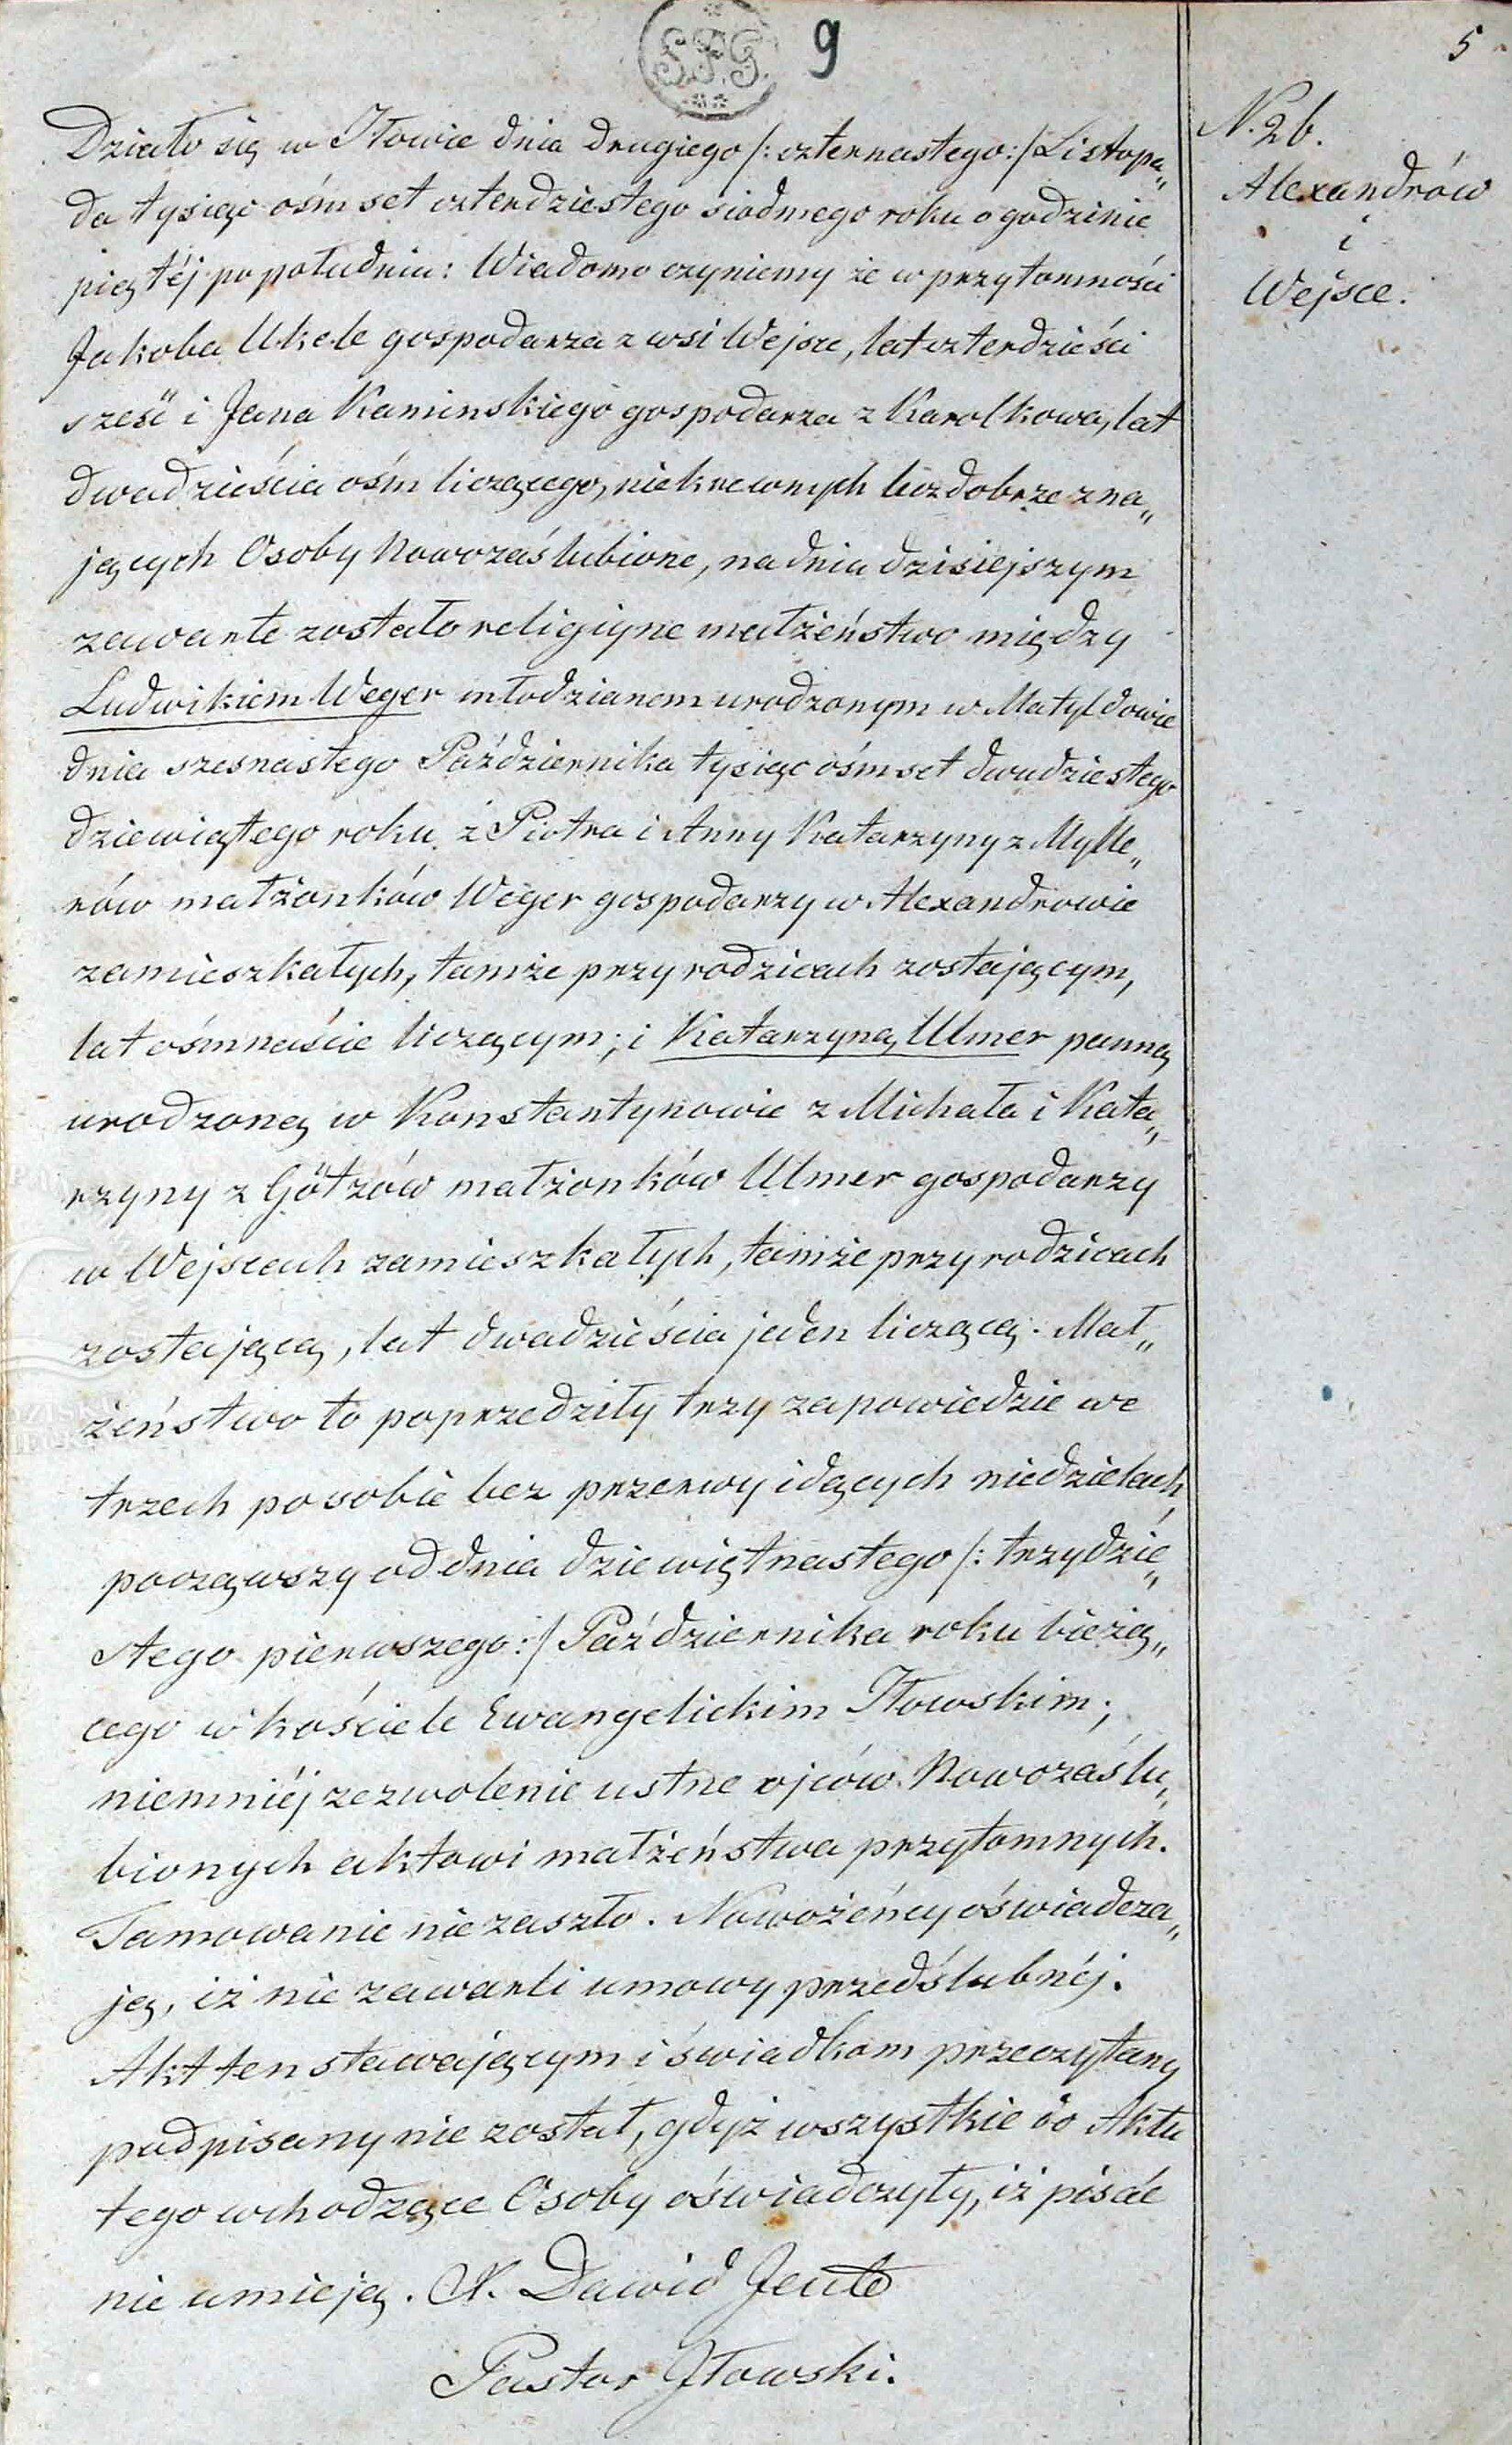 S.P.G. 9
5
N. 26.
Alexandrów
i
Wejsce.
Działo się w Iłowie dnia drugiego /: czternastego :/ Listopa„
da tysiąc ośmset czterdziestego siódmego roku o godzinie
piątéj po południu: Wiadomo czyniemy że w przytomności
Jakoba Ukele gospodarza z wsi Wejsce, lat czterdzieści
sześć i Jana Kaminskiego gospodarza z Karolkowa, lat
dwadzieścia ośm liczącego, niekrewnych lecz dobrze zna„
jących Osoby Nowozaślubione, na dniu dzisiejszym
zawarte zostało religiyne małżeństwo między
Ludwikiem Weger młodzianem urodzonym w Matyldowie
dnia szesnastego Października tysiąc ośmset dwudziestego
dziewiątego roku z Piotra i Anny Katarzyny z Mylle„
rów małżonków Weger gospodarzy w Alexandrowie
zamieszkałych, tamże przy rodzicach zostającym,
lat ośmnaście liczącym; i Katarzyną Ulmer panną
urodzoną w Konstantynowie z Michała i Kata„
rzyny z Götzów małżonków Ulmer gospodarzy
w Wejscach zamieszkałych, tamże przy rodzicach
zostającą, lat dwadzieścia jeden liczącą. Mał„
żeństwo to poprzedziły trzy zapowiedzie we
trzech po sobie bez przerwy idących niedzielach,
począwszy od dnia dziewiętnastego /: trzydzie„
stego pierwszego :/ Października roku bieżą„
cego w kościele Ewangelickim Iłowskim;
niemniéj zezwolenie ustne ojców Nowozaślu„
bionych aktowi małżeństwa przytomnych.
Tamowanie nie zaszło. Nowożeńcy oświadcza„
ją, iż nie zawarli umowy przedślubnéj.
Akt ten stawającym i świadkom przeczytany
podpisany nie został, gdyż wszystkie do Aktu
tego wchodzące Osoby oświadczyły, iż pisać
nie umieją. X. Dawid
Pastor Iłowski.